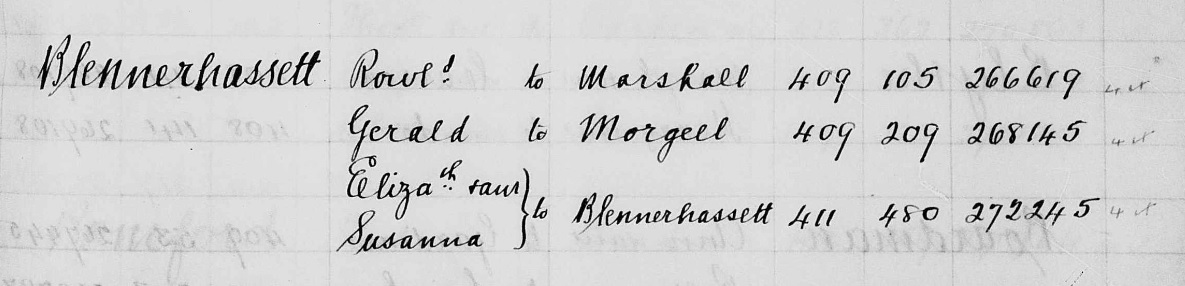 Blennerhassett Rowld to Marshall 409 105 266619
Gerald to Morgell 409 209 268145
Elizath &anr
Susanna } to Blennerhassett 411 480 272245